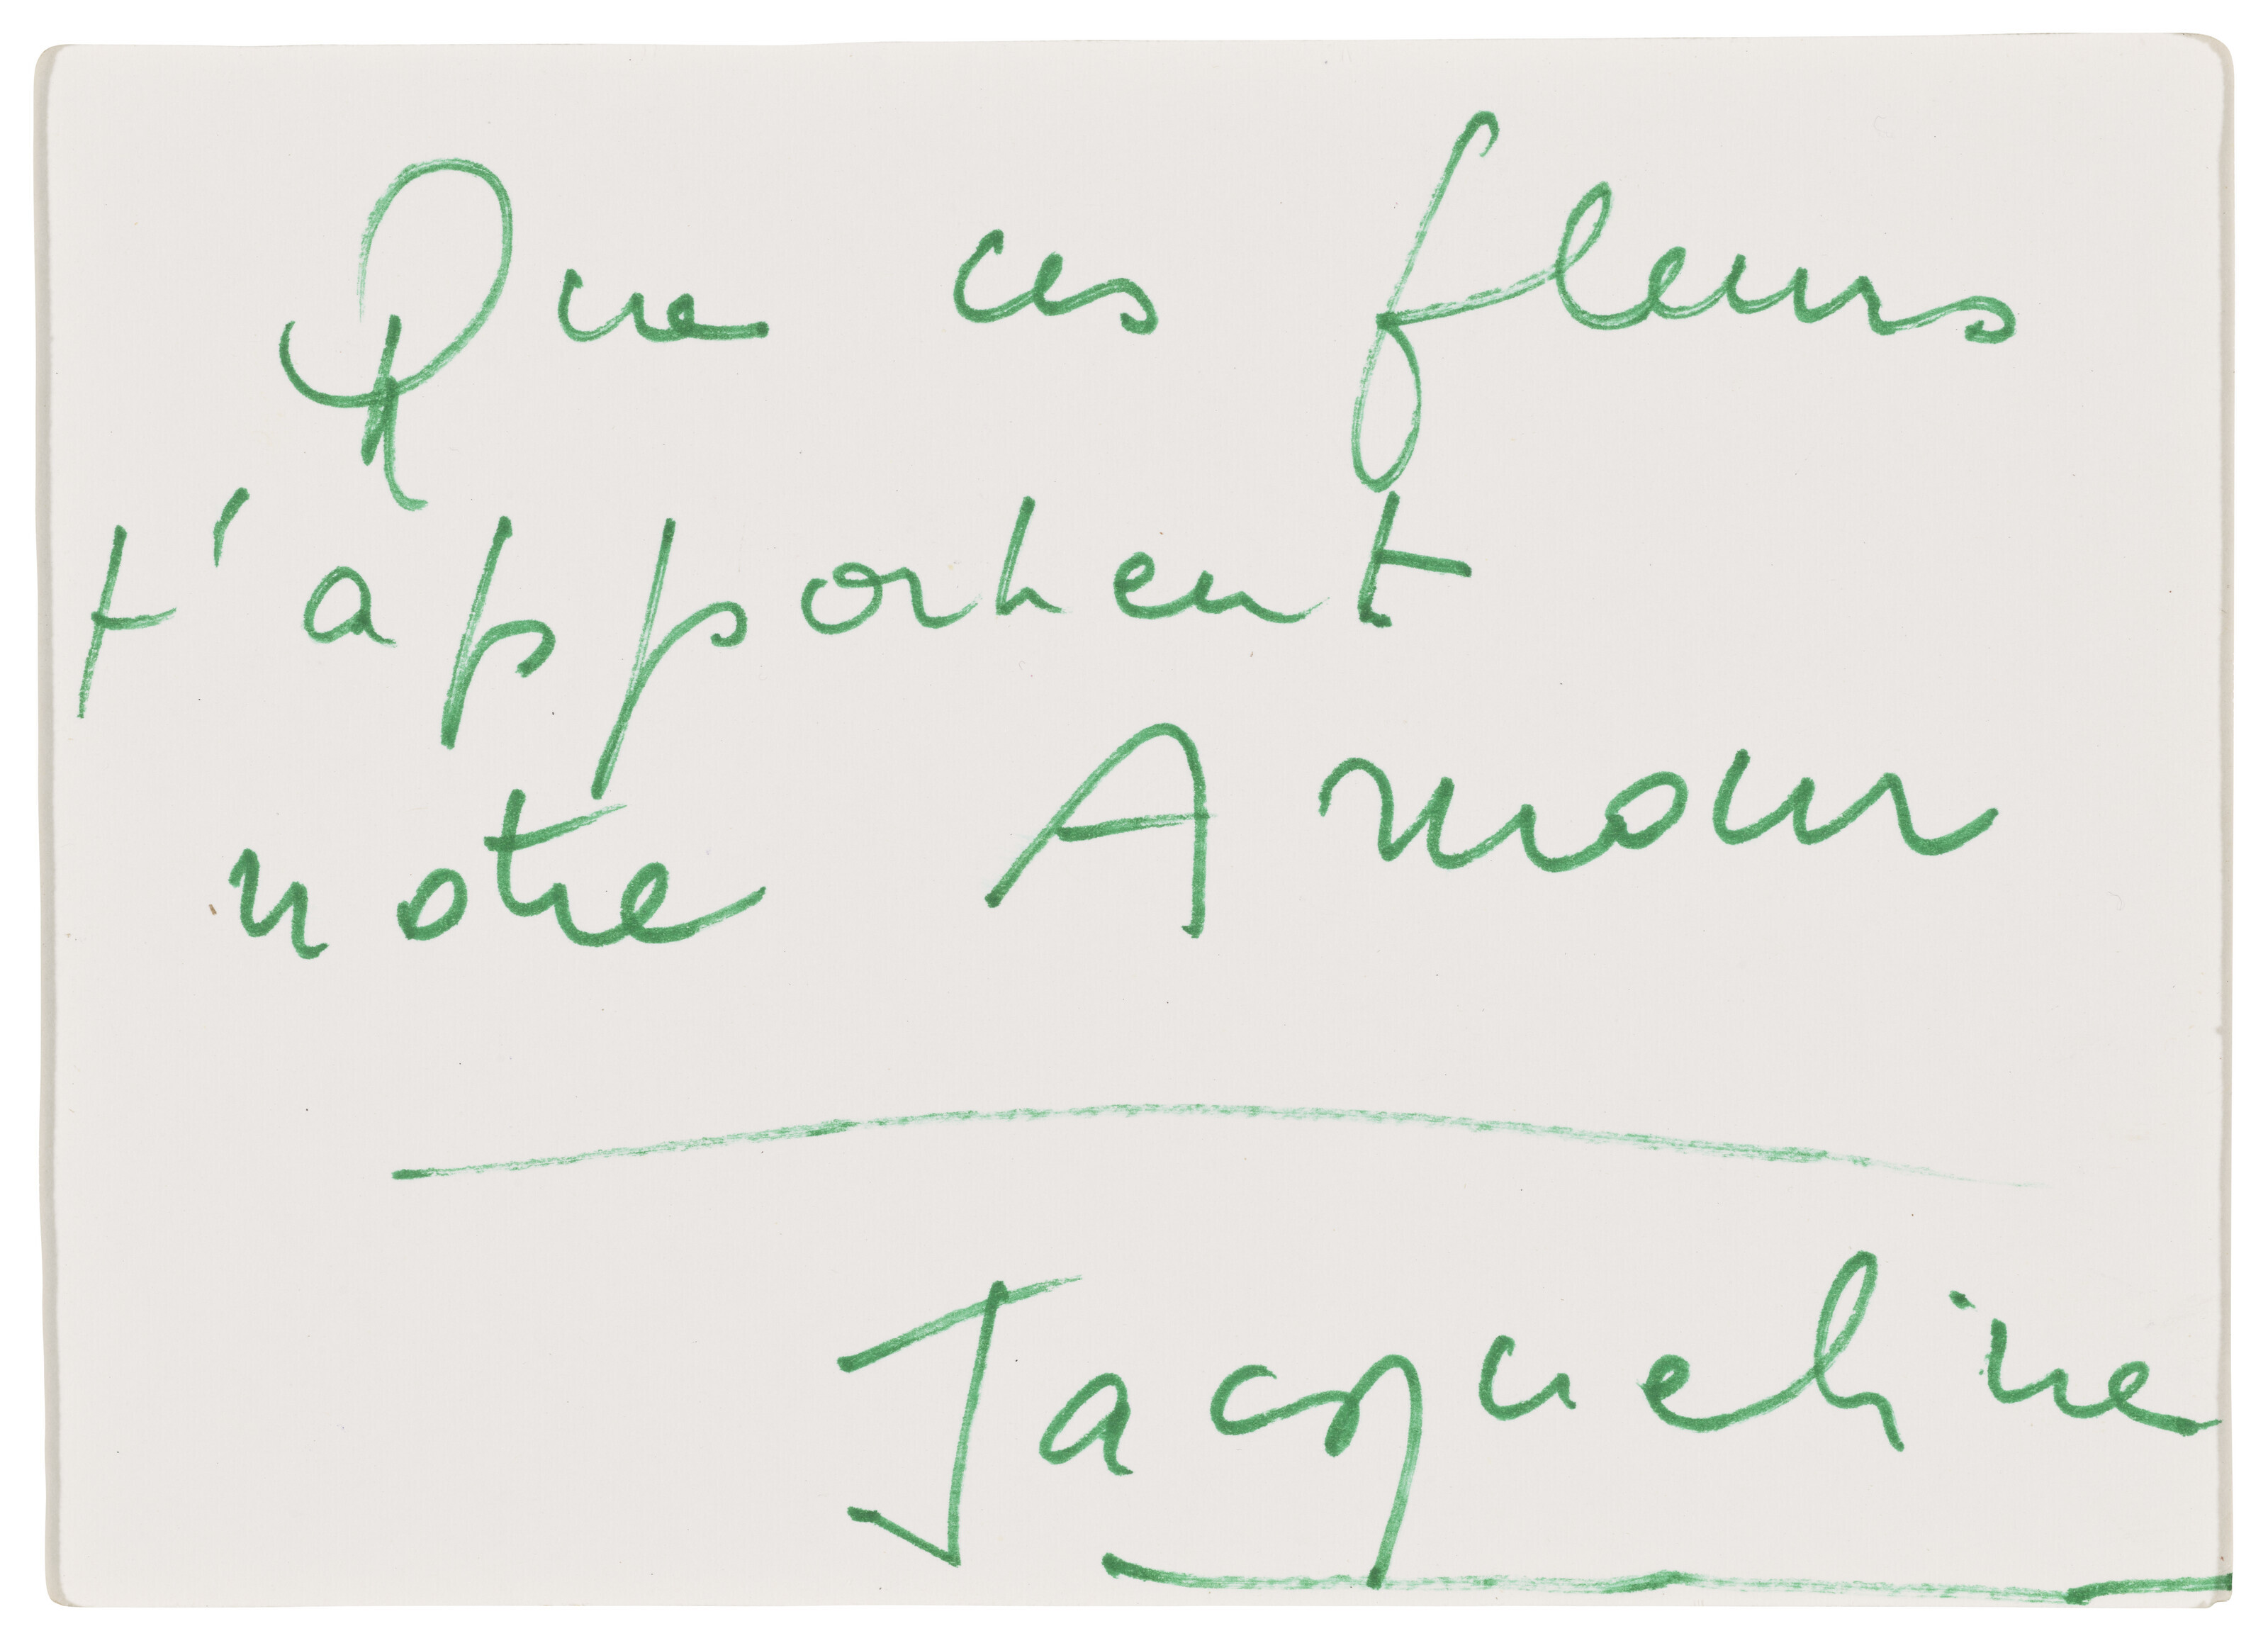 Que ces fleurs
t'apportent
notre Amour
Jacqueline